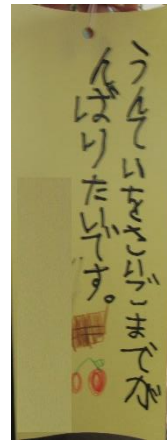 うんていをさいごまでが
んばりたいです。